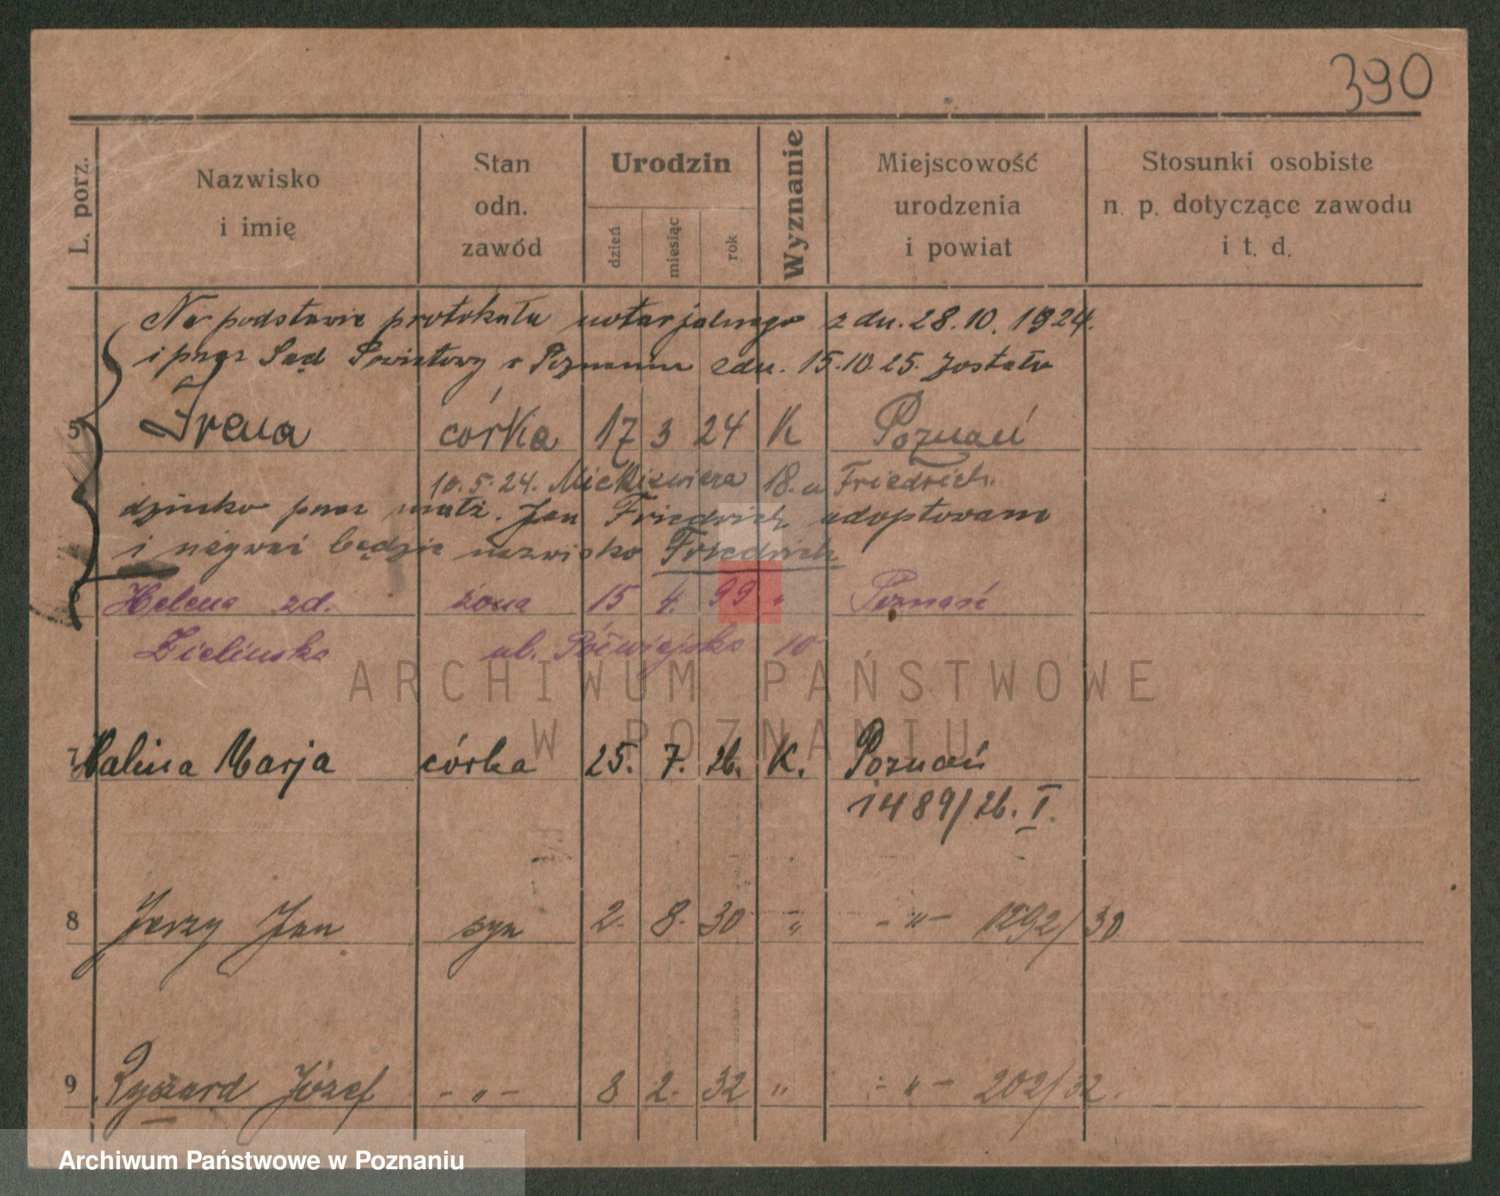 390
L. porz.
Nazwisko i imię
Stan odn. zawód
Urodzin
dzień miesiąc rok
Wyznanie
Miejscowość urodzenia i powiat
Stosunki osobiste n. p. dotyczące zawodu i t. d.
Na podstawie protokułu notarjalnego z dn. 28.10.1924.
i przez Sąd Powiatowy w Poznaniu z dn. 15.10.25. została
5 Irena córka 17 3 24 K Poznań
10.5.24. Mickiewicza 18. u Friedrich.
dziecko przez małż. Jan Friedrich adoptowane
i nazywać będzie nazwisko Friedrich
Helena zd. żona 15 4. 99 " Poznań
Zielińska ul. Półwiejska 10
ARCHIWUM PAŃSTWOWE
W POZNANIU
7 Halina Marja córka 25. 7. 26. K. Poznań
1489/26. I.
8 Jerzy Jan syn 2. 8. 30 " - " - 1292/30
9 Ryszard Józef - " - 8 2. 32 " - " - 202/32.
Archiwum Państwowe w Poznaniu